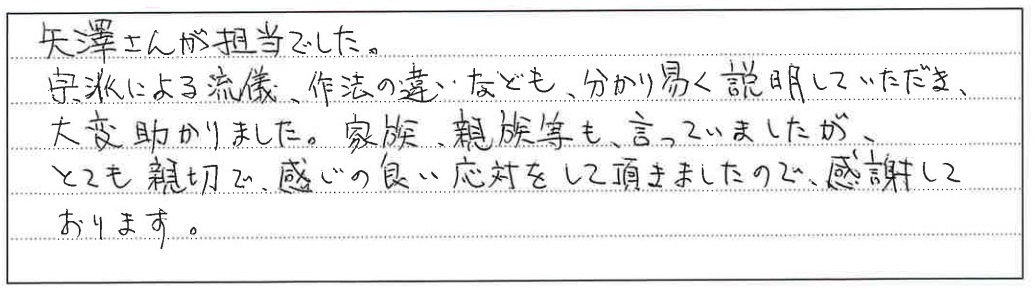 矢澤さんが担当でした。
宗派による流儀、作法の違いなども、分かり易く説明していただき、
大変助かりました。家族、親族等も、言っていましたが、
とても親切で、感じの良い応対をして頂きましたので、感謝して
おります。